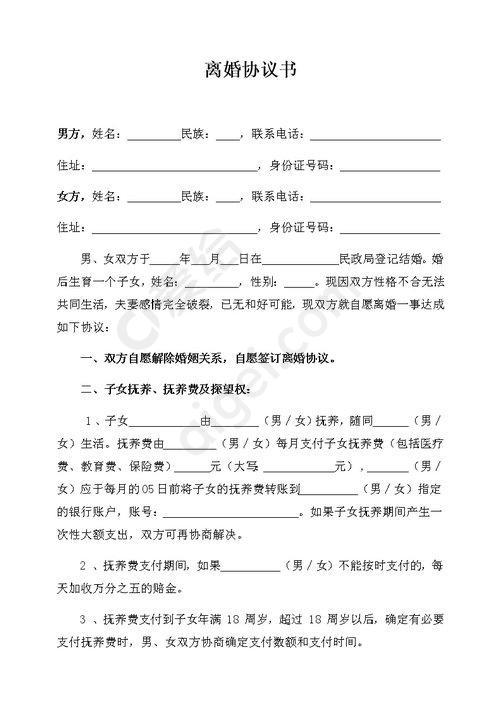 离婚协议书
男方，姓名：________民族：____，联系电话：____________________
住址：_________________________，身份证号码：_______________
女方，姓名：________民族：____，联系电话：____________________
住址：_________________________，身份证号码：_______________
男、女双方于_____年___月___日在____________民政局登记结婚。婚
后生育一个子女，姓名：________，性别：_____。现因双方性格不合无法
共同生活，夫妻感情完全破裂，已无和好可能，现双方就自愿离婚一事达成
如下协议：
一、双方自愿解除婚姻关系，自愿签订离婚协议。
二、子女抚养、抚养费及探望权：
1、子女___________由_________（男／女）抚养，随同______（男／
女）生活。抚养费由________（男／女）每月支付子女抚养费（包括医疗
费、教育费、保险费）______元（大写：___________元），______（男／
女）应于每月的05日前将子女的抚养费转账到_________（男／女）指定
的银行账户，账号：_____________________。如果子女抚养期间产生一
次性大额支出，双方可再协商解决。
2、抚养费支付期间，如果_________（男／女）不能按时支付的，每
天加收万分之五的赔金。
3、抚养费支付到子女年满 18 周岁，超过 18 周岁以后，确定有必要
支付抚养费时，男、女双方协商确定支付数额和支付时间。
爱给
aigei.com